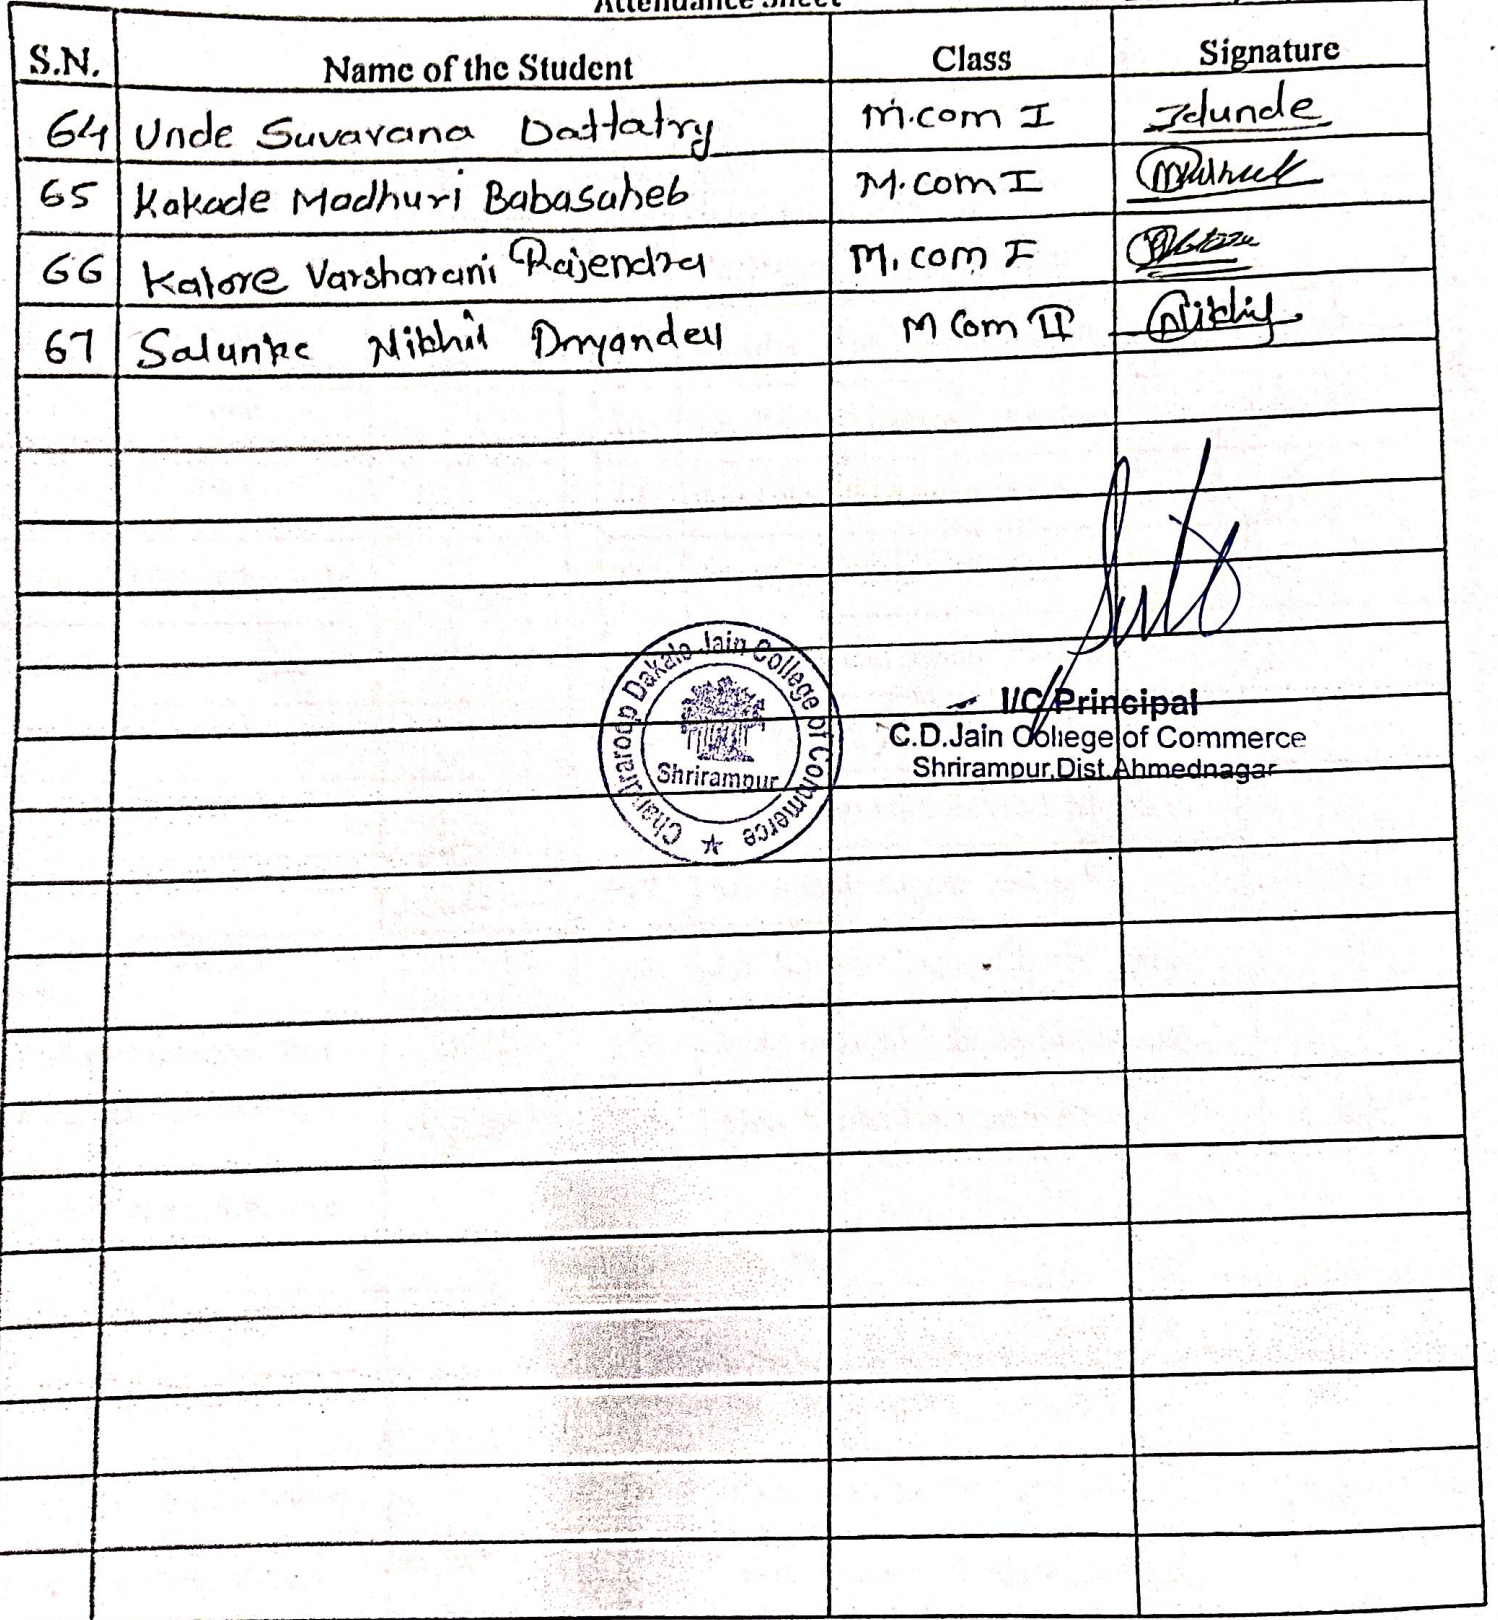 Attendance Sheet
S.N. Name of the Student Class Signature
64 Unde Suvarana Dattatry M.com I
65 Kakade Madhuri Babasaheb M.com I
66 Kalore Varsharani Rajendra M.com I
67 Salunke Nikhil Dnyandeu M Com II Nikhil
Chandraroop Dakale Jain College of Commerce
Shrirampur
I/C Principal
C.D.Jain College of Commerce
Shrirampur, Dist.Ahmednagar